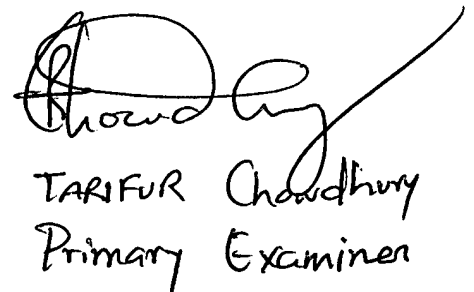 Chowdhury
TARIFUR Chowdhury
Primary Examiner